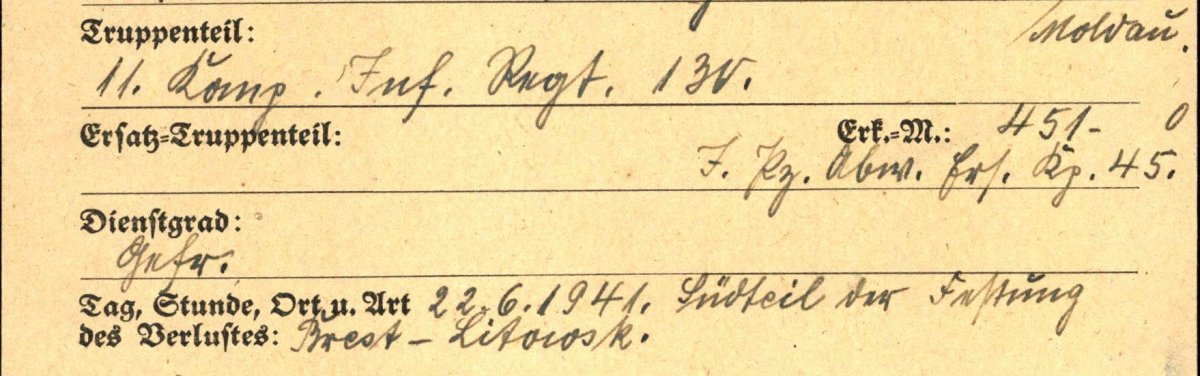 Moldau.
Truppenteil:
11. Komp. Inf. Regt. 130.
Ersatz=Truppenteil: Erk.=M.: 451- 0
J. Pz. Abw. Ers. Kp. 45.
Dienstgrad:
Gefr.
Tag, Stunde, Ort u. Art 22.6.1941. Südteil der Festung
des Verlustes: Brest - Litowsk.